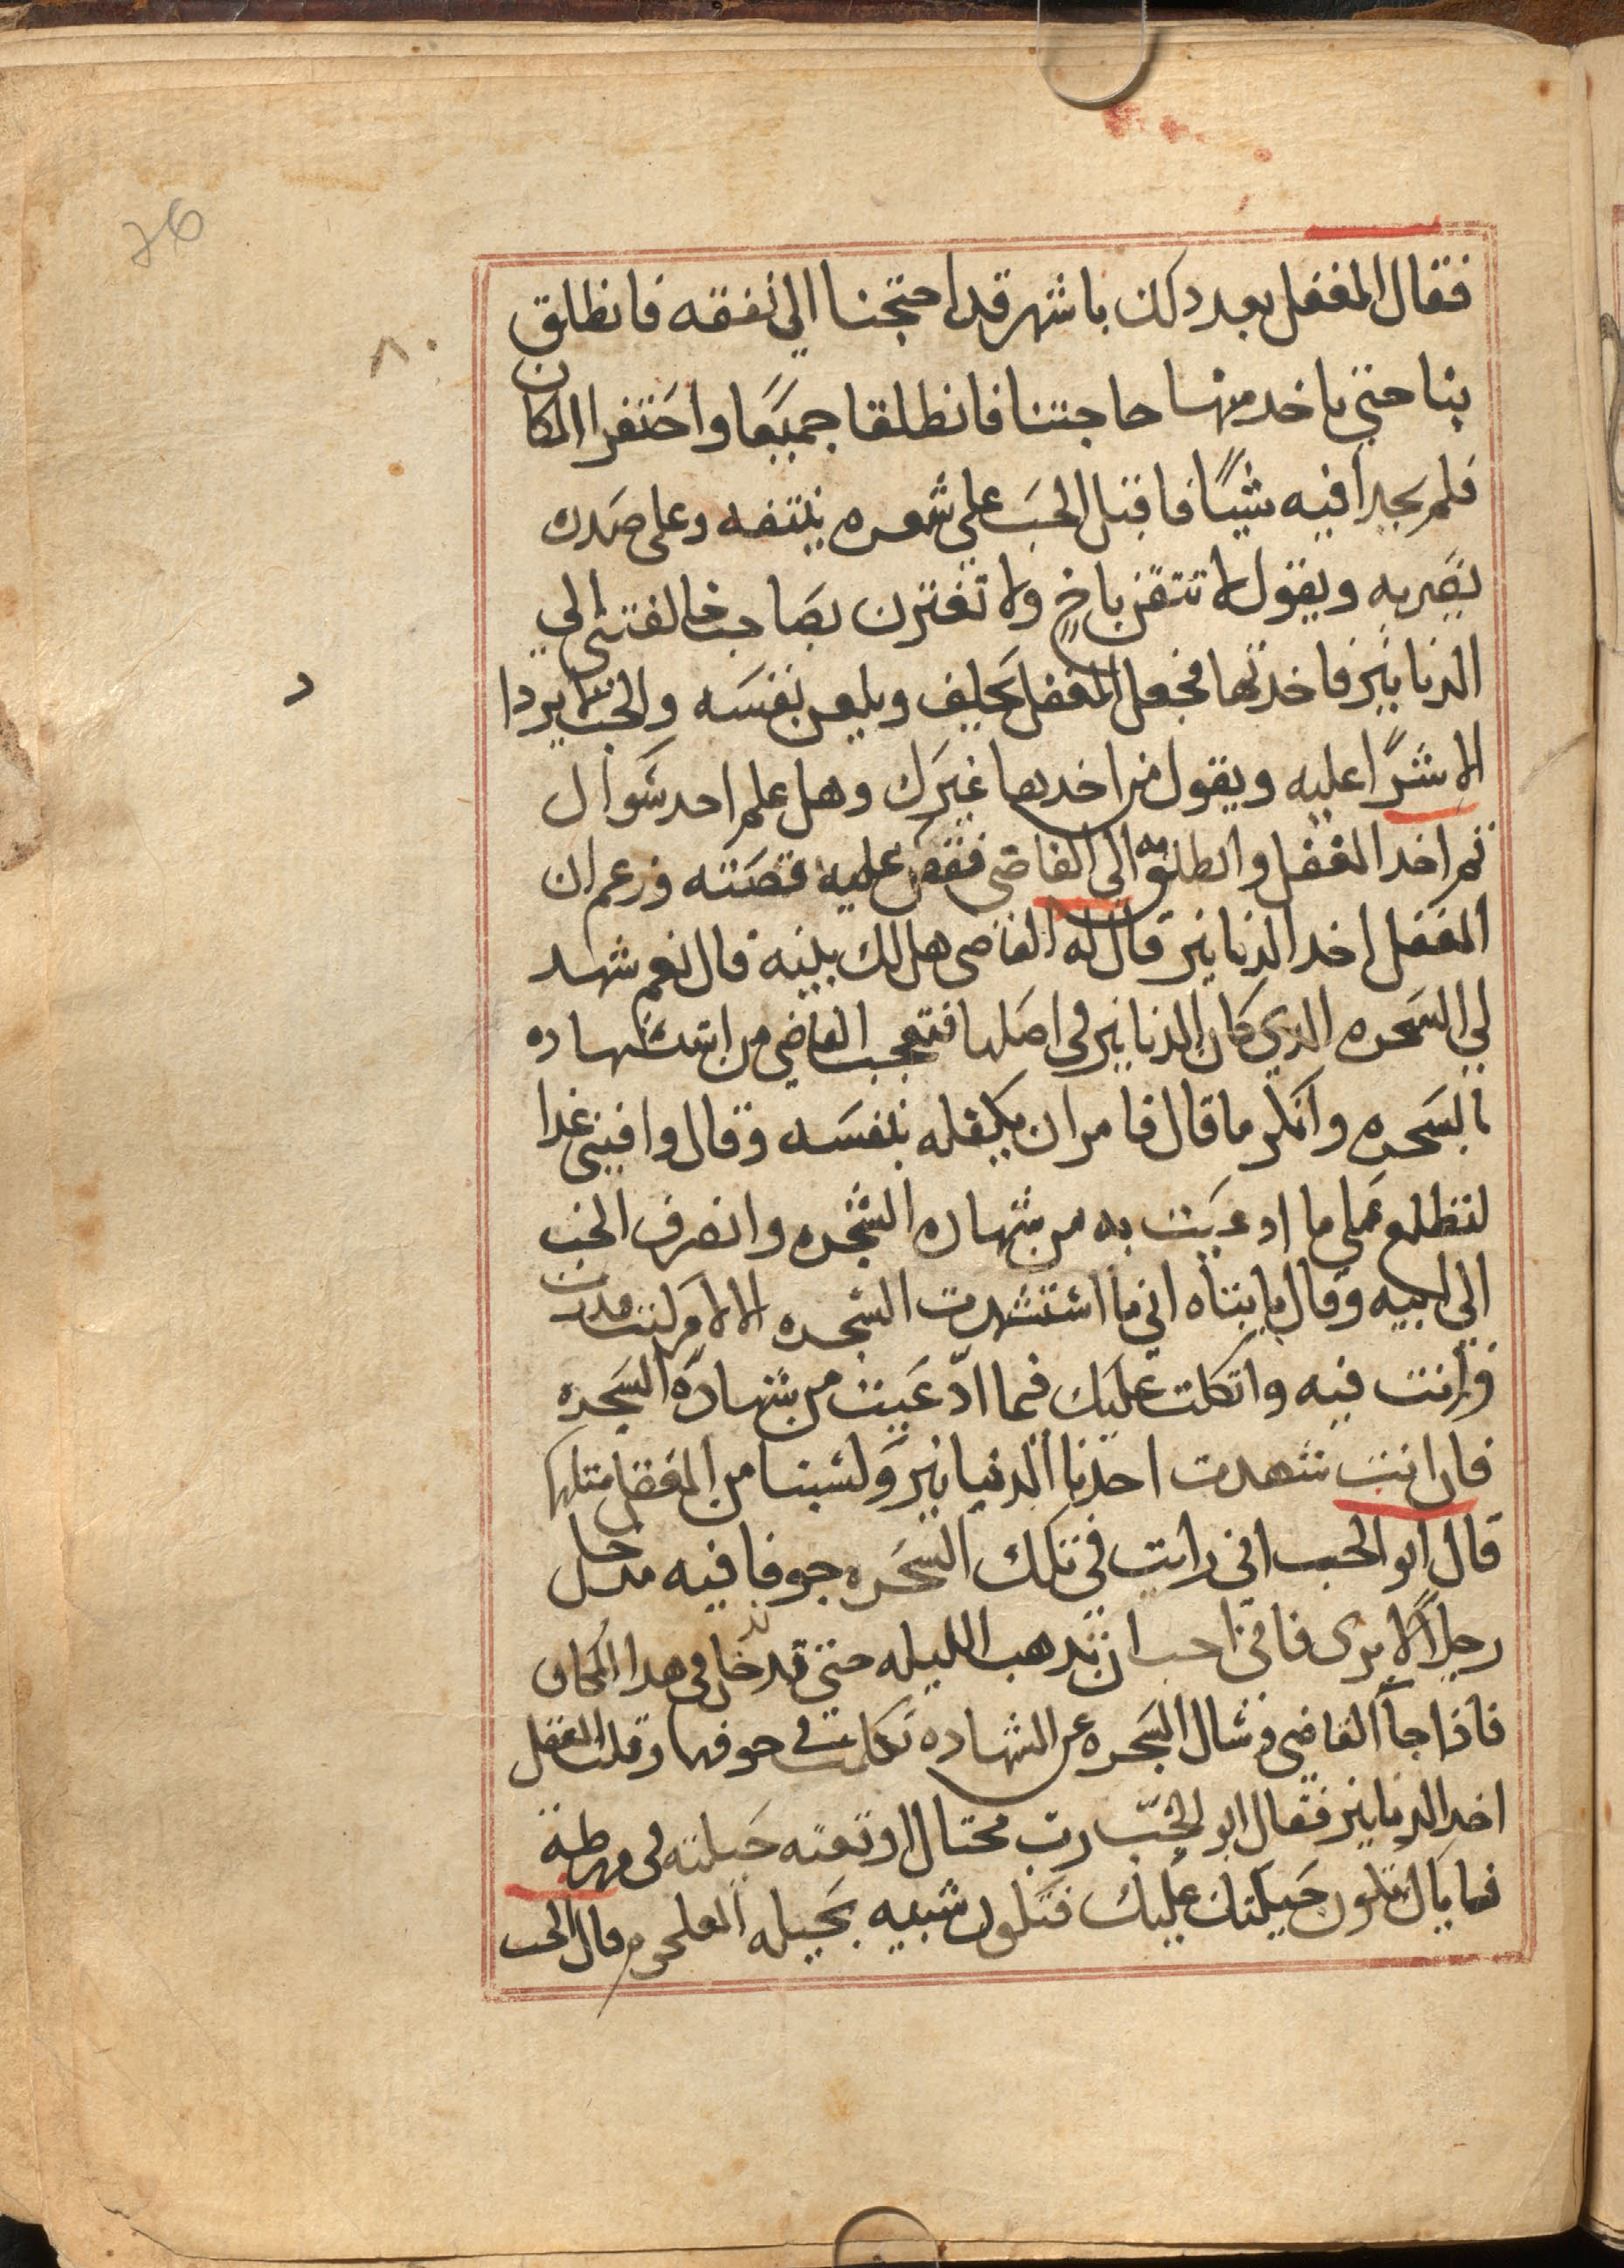 76
٨٠
فقال المغفل بعد دلك باشهر قد احتجنا الي نفقه فانطلق
بنا حتي ناخد منها حاجتنا فانطلقا جميعًا واحتفرا المكان
فلم يجدا فيه شيًا فاقبل الخب علي شعره ينتفه وعلى صدره
يضربه ويقول لا تثقن باخٍ ولا تغترن بصاحب خالفتني الي
الدنانير فاخدتها فجعل المغفل يحلف ويلعن نفسه والخب لا يزدا
د
الا شرًا عليه ويقول من اخدها غيرك وهل علم احد سوال
ثم اخد المغفل وانطلق به الى القاضي فقص عليه قصته وزعم ان
المغفل اخد الدنانير قال له القاضى هل لك بينه قال نعم شهد
لي السحره الدي كان الدنانير في اصلها فتعجب القاضي من استشهاده
بالسحره وانكر ما قال فامر ان يكفله بنفسه وقال وافيني غدا
لنطلع على ما ادعيت به من شهاده الشجره وانصرف الخب
الي ابيه وقال يا ابتاه اني ما استشهدت الشجره الا لامر كنت قدرت
وارنت فيه واتكلت عليك فيما ادّعيت من شهادة السجره
فان انت شهدت احدنا الدنيانير وكسبنا من المغفل مثلها
قال ابو الخب اني رايت في تلك السجره جوفا فيه مدخل
رجلاً لا يرى فاني احب ان تدهب الليله حتي تدخل في هدا المكان
فاذا جآ القاضي وسال السجره عن الشهاده تكلمت في جوفها وقلت المغفل
اخد الدنانير فقال ابو الخبّ رب محتال اوقعته حيلته في ورطة
فما يال تكون حيلتك عليك فتكون شبيه بحيله العلجوم قال الخب